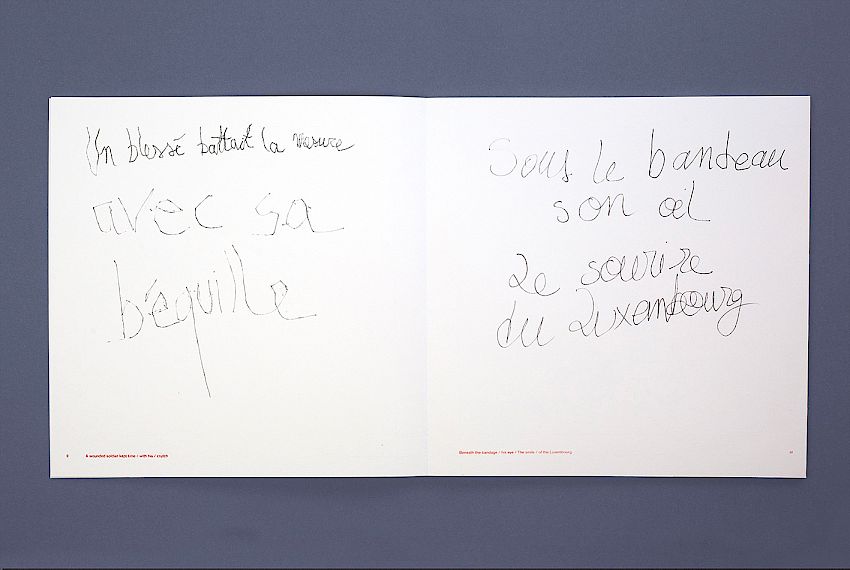 Un blessé battait la mesure
avec sa
béquille
A wounded soldier kept time / with his / crutch
Sous le bandeau
son œil
Le sourire
du Luxembourg
Beneath the bandage / his eye / The smile / of the Luxembourg